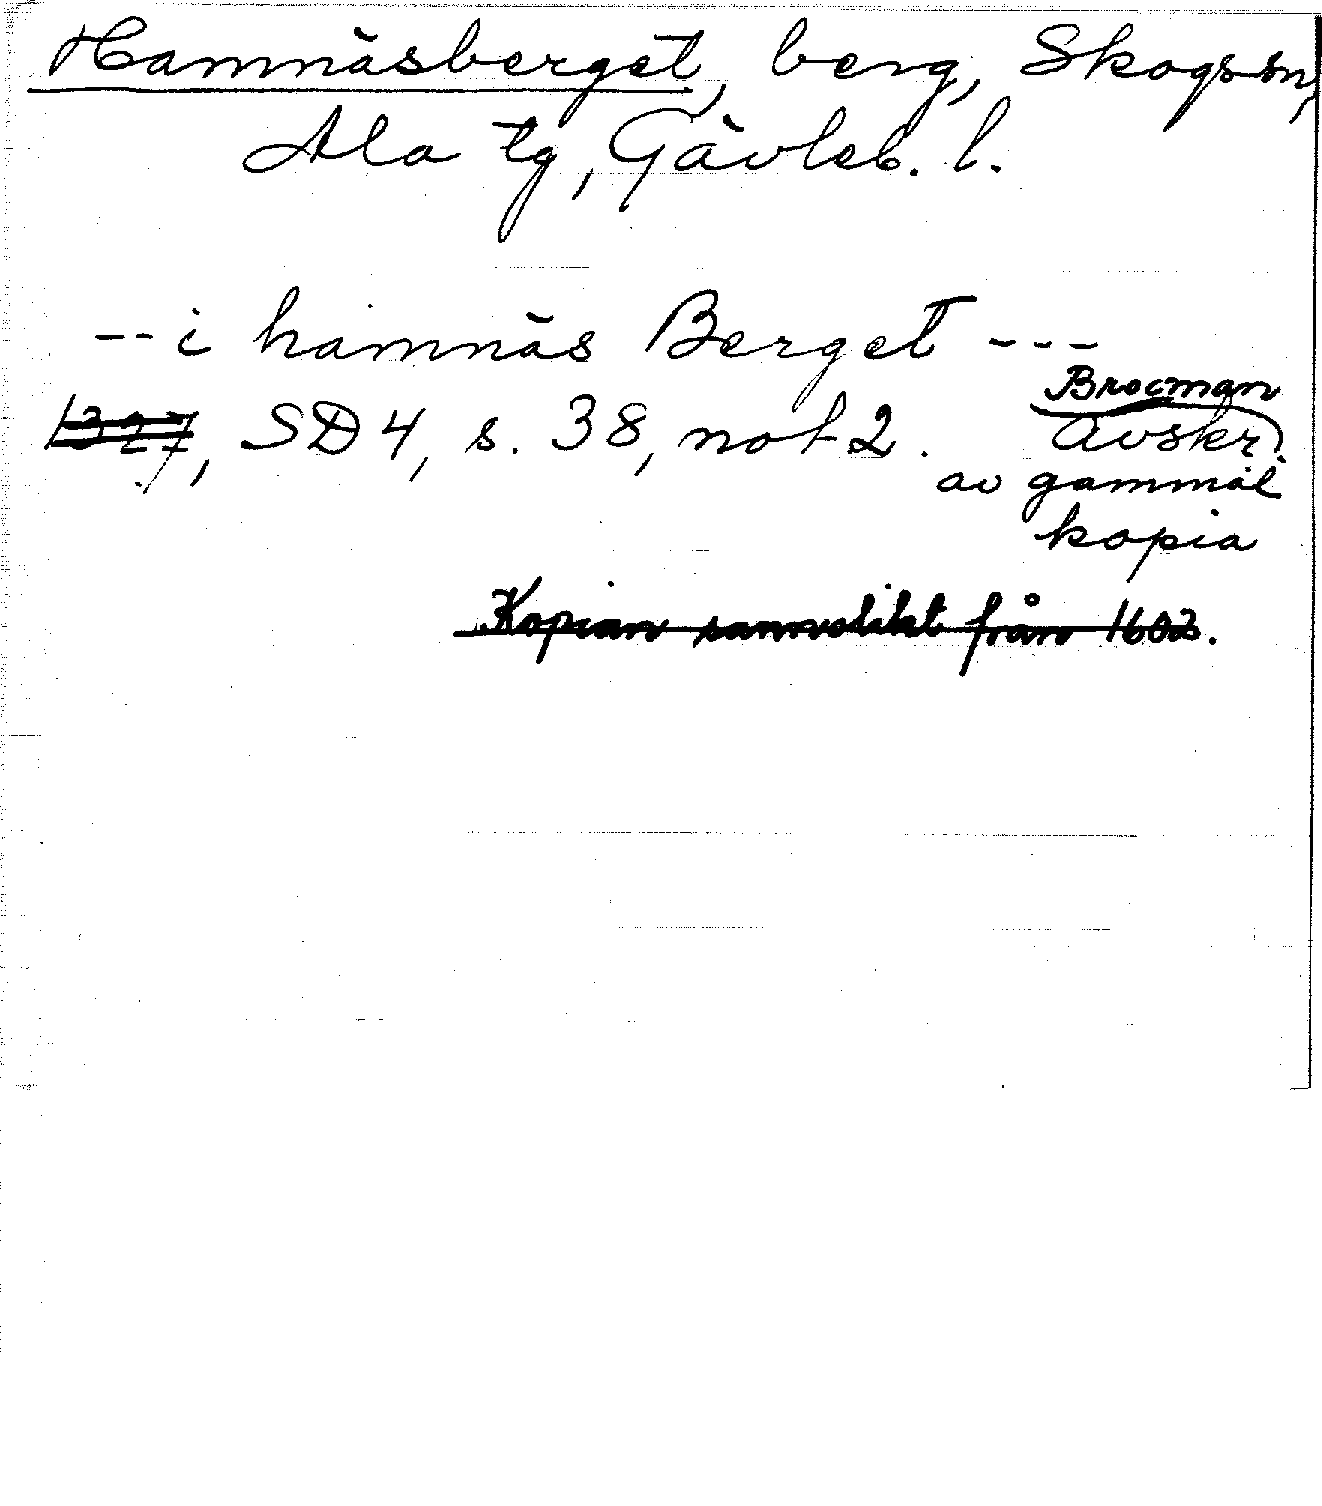 Hamnäsberget, berg, Skogs sn,
Ala tg, Gävleb. l.
-- i hamnäs Berget ---
1327, SD 4, s. 38, not 2.
Brocman
avskr.
av gammal
kopia
Kopian sannolikt från 1602.